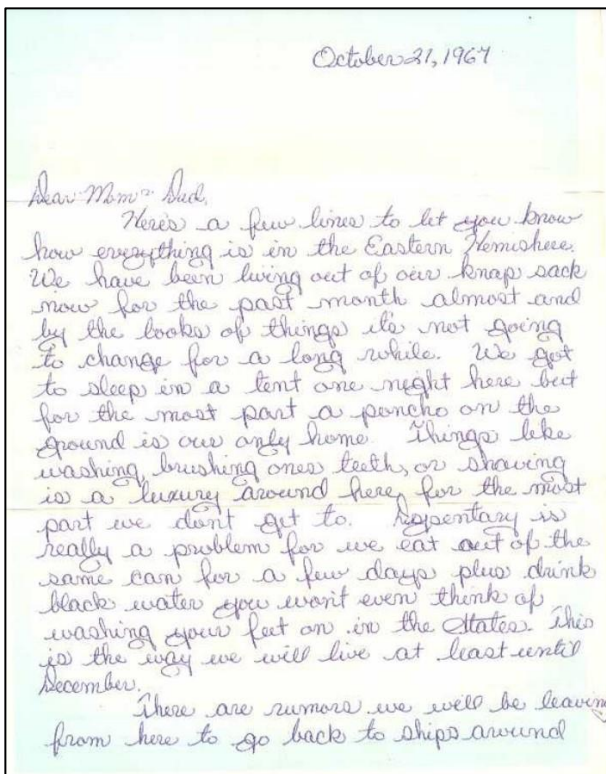 October 21, 1967
Dear Mom & Dad,
Here's a few lines to let you know
how everything is in the Eastern Hemishere.
We have been living out of our knap sack
now for the past month almost and
by the looks of things it's not going
to change for a long while. We got
to sleep in a tent one night here but
for the most part a poncho on the
ground is our only home. Things like
washing, brushing ones teeth, or shaving
is a luxury around here, for the most
part we don't get to. is
really a problem for we eat out of the
same can for a few days plus drink
black water you won't even think of
washing your feet on in the States. This
is the way we will live at least until
December.
There are rumors we will be leaving
from here to go back to ships around